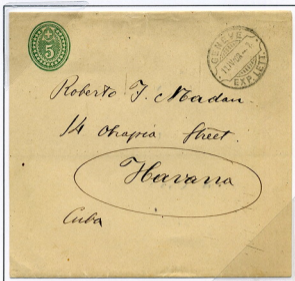 5
GENÈVE
EXP. LETT.
Roberto J. Madan
14 Obrapia Street.
Havana
Cuba